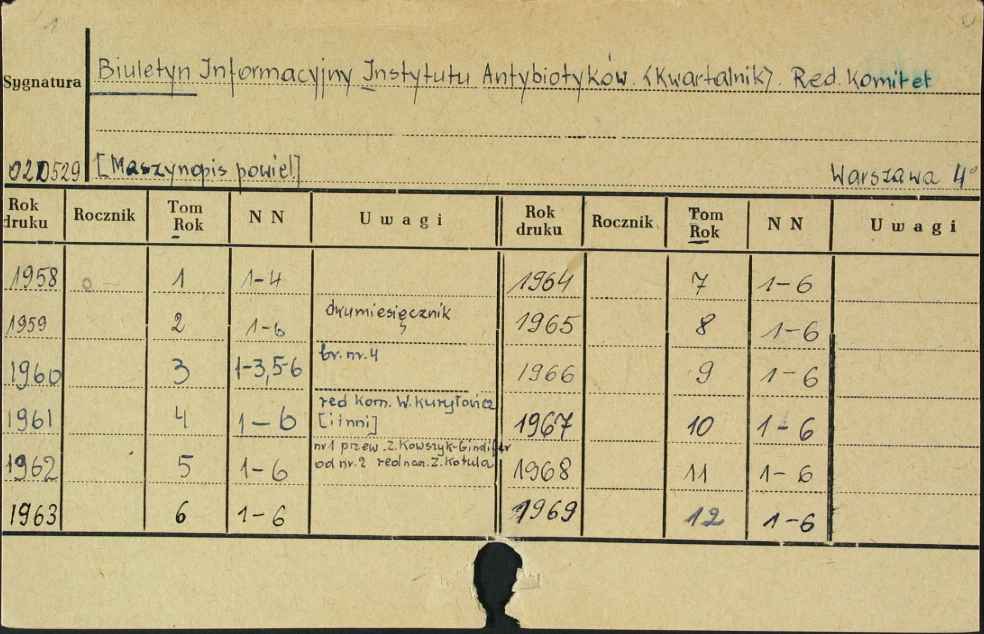 Sygnatura Biuletyn Informacyjny Instytutu Antybiotyków. <Kwartalnik>. Red. Komitet
020529 [Maszynopis powiel] Warszawa 4°
Rok druku Rocznik Tom Rok N N Uwagi Rok druku Rocznik Tom Rok N N Uwagi
1958 1 1-4 1964 7 1-6
1959 2 1-6 dwumiesięcznik 1965 8 1-6
1960 3 1-3,5-6 br. nr. 4 1966 9 1-6
1961 4 1-6 red kom. W. Kuryłowicz [i inni] 1967 10 1-6
1962 5 1-6 nr 1 przew. Z. Kowszyk-Gindifer od nr. 2 red nacz. Z. Kotula 1968 11 1-6
1963 6 1-6 1969 12 1-6